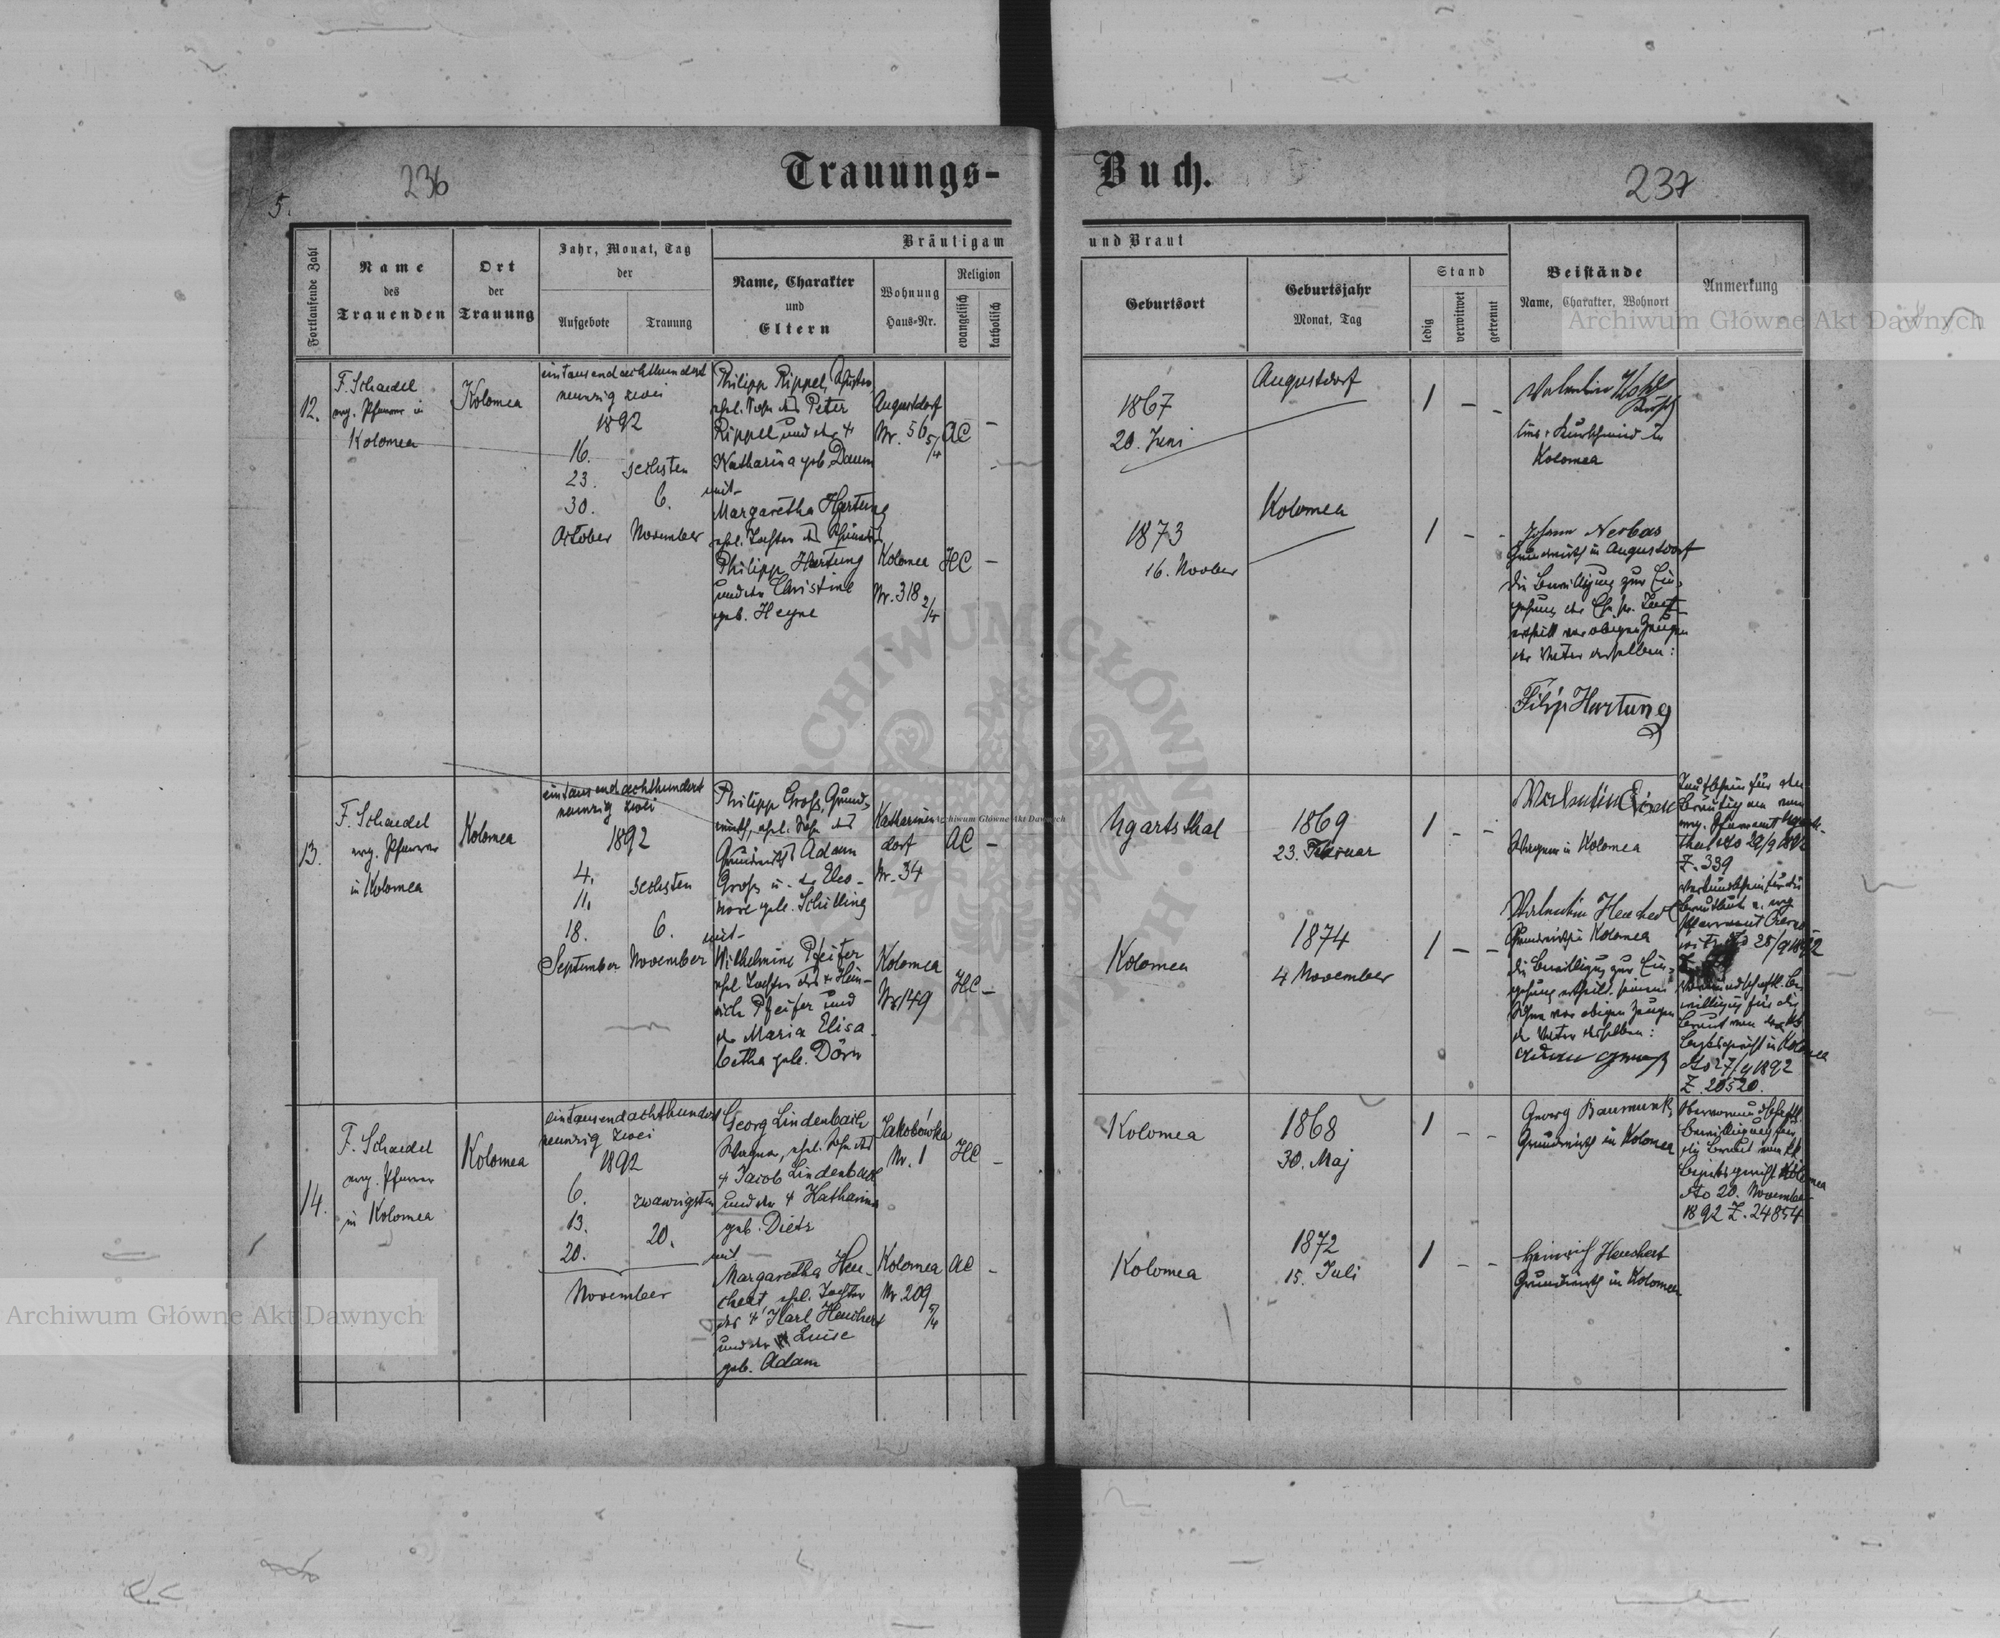 236
Trauungs-
Buch.
237
5.
Fortlaufende Zahl
Name
des
Trauenden
Ort
der
Trauung
Jahr, Monat, Tag
der
Aufgebote
Trauung
Bräutigam
Name, Charakter
und
Eltern
Wohnung
Haus=Nr.
Religion
evangelisch
katholisch
und Braut
Geburtsort
Geburtsjahr
Monat, Tag
Stand
ledig
verwitwet
getrennt
Beistände
Name, Charakter, Wohnort
Anmerkung
12.
F. Schaedel
evg. Pfarrer in
Kolomea
Kolomea
eintausendachthundert
neunzig zwei
1892
16.
23.
30.
October
sechsten
6.
November
Philipp Rippel,
ehl. Sohn des Peter
Rippel und der †
Katharina geb. Daum
mit
Margaretha Hartung
ehl. Tochter des
Philipp Hartung
und der Christine
geb. Heyne
Augustdorf
Nr. 56 5/4
AC –
Kolomea
Nr. 318 2/4
HC –
1867
20. Juni
Augustdorf
1 – –
1873
16. Novber
Kolomea
1 – –
Valentin
Kurschmied in
Kolomea
Johann Nerbas
Grundwirth in Augustdorf
die Bewilligung zur Ein-
gehung der Ehe
ertheilt vor obigen Zeugen
der Vater derselben:
Filip Hartung
13.
F. Schaedel
evg. Pfarrer
in Kolomea
Kolomea
eintausendachthundert
neunzig zwei
1892
4.
11.
18.
September
sechsten
6.
November
Philipp Groß, Grund-
wirth, ehl. Sohn des
Grundwirths Adam
Groß u. der Eleo-
nore geb. Schilling
mit
Wilhelmine Pfeifer
ehl. Tochter des † Hein-
rich Pfeifer und
der Maria Elisa-
betha geb. Dörr
Katharinen-
dorf
Nr. 34
AC –
Kolomea
Nr 149
HC –
Ugartsthal
1869
23. Februar
1 – –
Kolomea
1874
4 November
1 – –
Valentin
Wagner in Kolomea
Valentin Heuchert
Grundwirth in Kolomea
die Bewilligung zur Ein-
gehung ertheilt seinem
Sohne vor obigen Zeugen
der Vater desselben:
Taufschein für den
Bräutigam vom
evg. Pfarramt Ugarts-
thal dto 29/9 1892
Z. 339
Verkündschein für die
Brautleute v. evg
Pfarramt
dto 25/9 1892
Vormundschaftl. Be-
willigung für die
Braut vom kk
Bezirksgericht in Kolomea
dto 27/9 1892
Z. 20520.
14.
F. Schaedel
evg. Pfarrer
in Kolomea
Kolomea
eintausendachthundert
neunzig zwei
1892
6.
13.
20.
November
zwanzigsten
20.
Georg Lindenbach
Wagner, ehl. Sohn des
† Jacob Lindenbach
und der † Katharina
geb. Dietz
mit
Margaretha Heu-
chert, ehl. Tochter
des † Karl Heuchert
und der Luise
geb. Adam
Jakobówka
Nr. 1
HC –
Kolomea
Nr 209 5/4
AC –
Kolomea
1868
30. Maj
1 – –
Kolomea
1872
15. Juli
1 – –
Georg Baumunk,
Grundwirth in Kolomea
Heinrich Heuchert
Grundwirth in Kolomea
Obervormundschaftl.
Bewilligung für
die Braut vom kk
Bezirksgericht Kolomea
dto 20. November
1892 Z. 24854
Archiwum Główne Akt Dawnych
Archiwum Główne Akt Dawnych
Archiwum Główne Akt Dawnych
ARCHIWUM GŁÓWNE AKT DAWNYCH